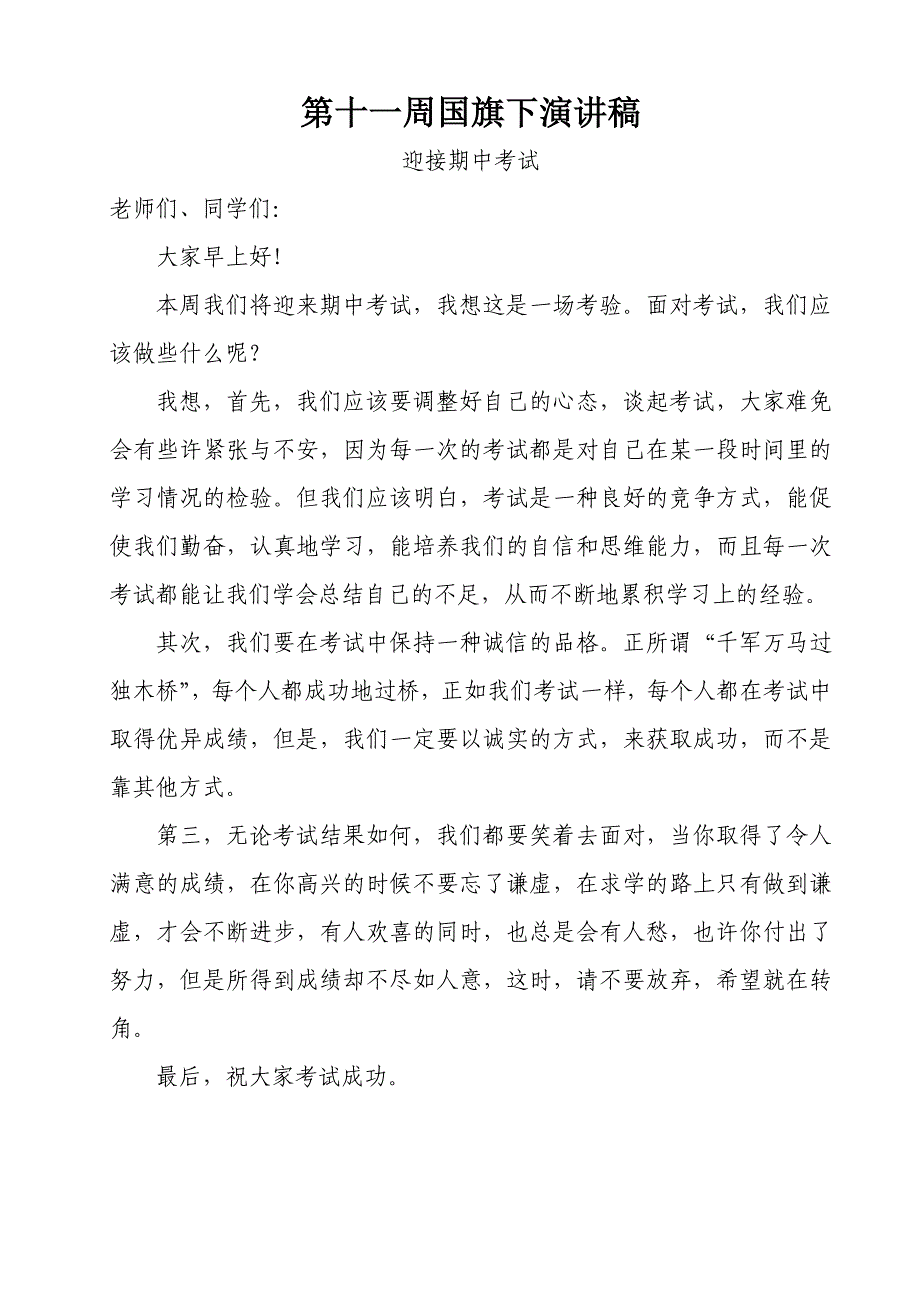 第十一周国旗下演讲稿
迎接期中考试
老师们、同学们：
大家早上好！
本周我们将迎来期中考试，我想这是一场考验。面对考试，我们应
该做些什么呢？
我想，首先，我们应该要调整好自己的心态，谈起考试，大家难免
会有些许紧张与不安，因为每一次的考试都是对自己在某一段时间里的
学习情况的检验。但我们应该明白，考试是一种良好的竞争方式，能促
使我们勤奋，认真地学习，能培养我们的自信和思维能力，而且每一次
考试都能让我们学会总结自己的不足，从而不断地累积学习上的经验。
其次，我们要在考试中保持一种诚信的品格。正所谓“千军万马过
独木桥”，每个人都成功地过桥，正如我们考试一样，每个人都在考试中
取得优异成绩，但是，我们一定要以诚实的方式，来获取成功，而不是
靠其他方式。
第三，无论考试结果如何，我们都要笑着去面对，当你取得了令人
满意的成绩，在你高兴的时候不要忘了谦虚，在求学的路上只有做到谦
虚，才会不断进步，有人欢喜的同时，也总是会有人愁，也许你付出了
努力，但是所得到成绩却不尽如人意，这时，请不要放弃，希望就在转
角。
最后，祝大家考试成功。